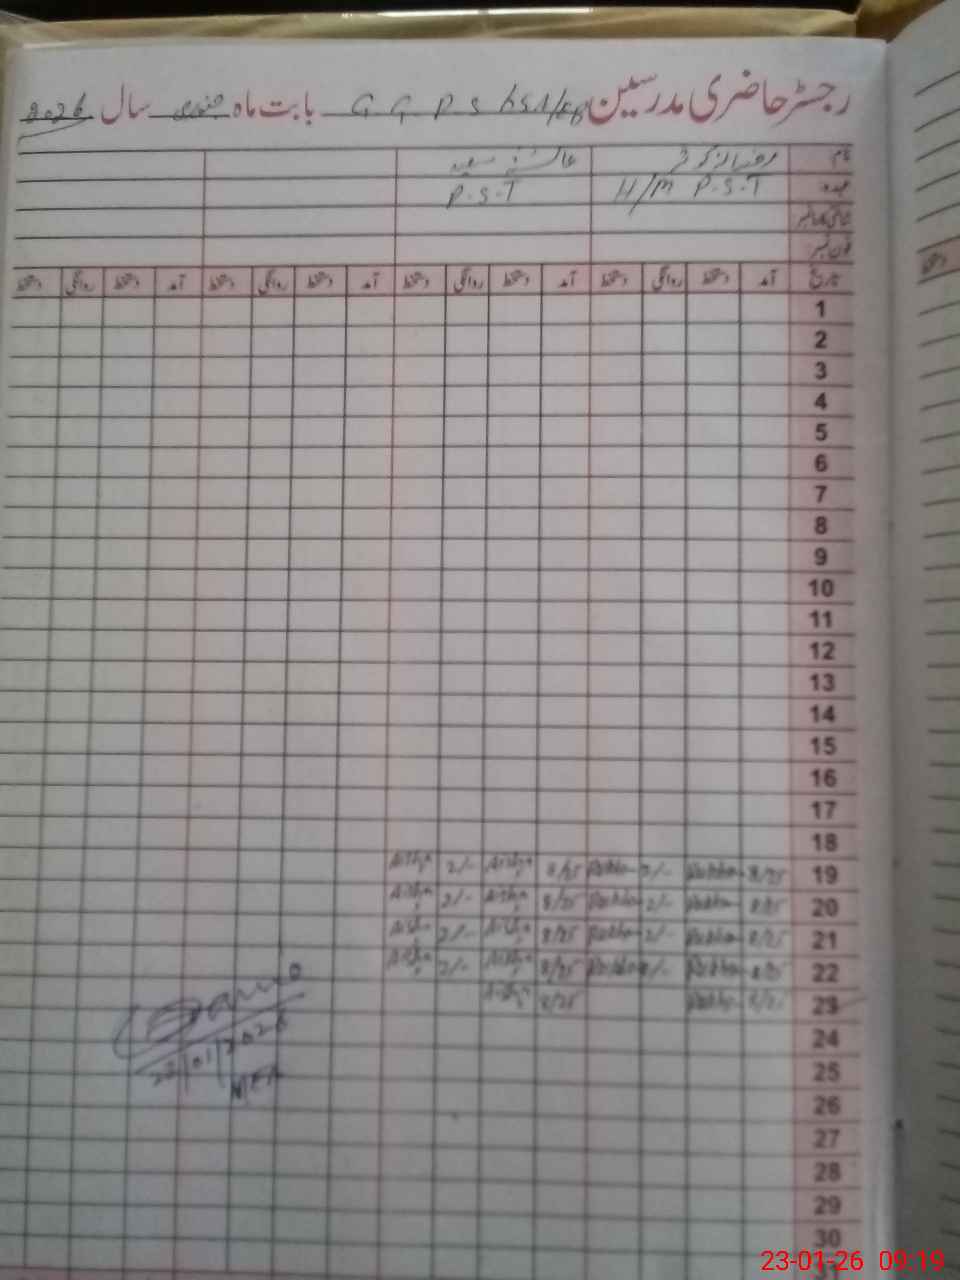 رجسٹر حاضری مدرسین G G P S بابت ماہ جنوری سال 2026
نام
عہدہ H/M P.S.T P.S.T
شناختی کارڈ نمبر
فون نمبر
تاریخ آمد دستخط روانگی دستخط آمد دستخط روانگی دستخط آمد دستخط روانگی دستخط آمد دستخط روانگی دستخط
1
2
3
4
5
6
7
8
9
10
11
12
13
14
15
16
17
18
19 8/25 2/- 8/25 Aisha 2/- Aisha
20 8/25 2/- 8/25 Aisha 2/- Aisha
21 8/25 2/- 8/25 Aisha 2/- Aisha
22 8/25 2/- 8/25 Aisha 2/- Aisha
23 8/25 8/25 Aisha
24
25
26
27
28
29
30
22/01/2026
MEA
23-01-26 09:19